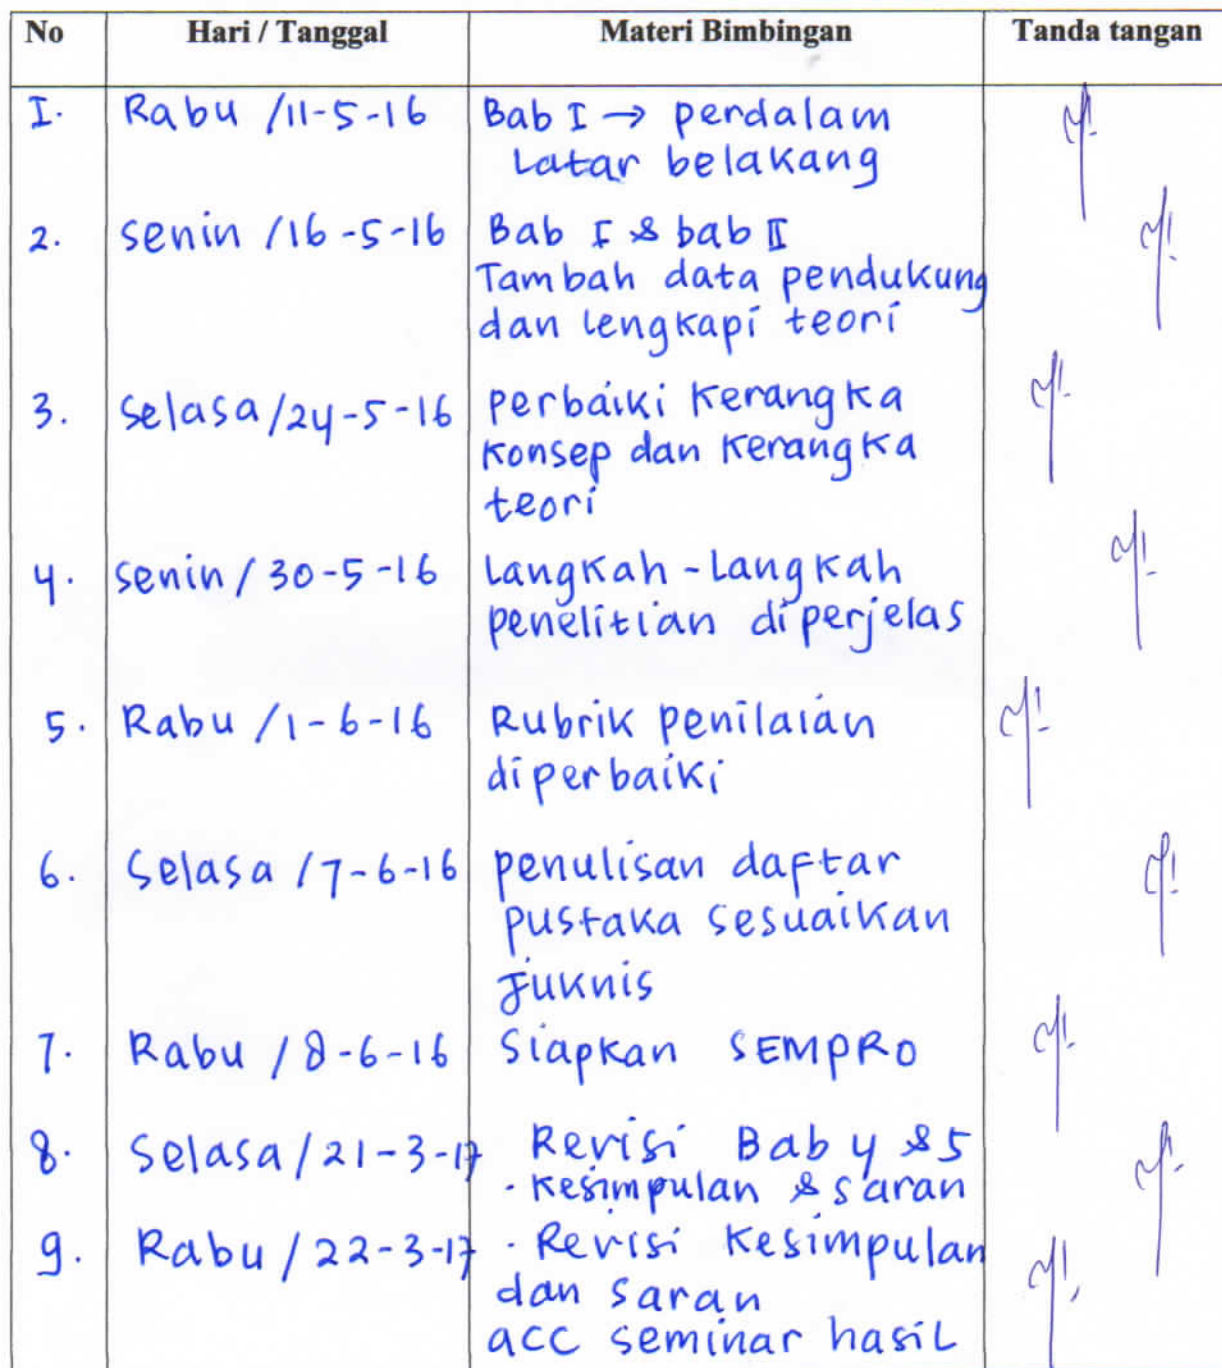 No Hari / Tanggal Materi Bimbingan Tanda tangan
I. Rabu /11-5-16 Bab I → perdalam
Latar belakang
2. senin /16-5-16 Bab I & bab II
Tambah data pendukung
dan lengkapi teori
3. Selasa/24-5-16 perbaiki kerangka
konsep dan kerangka
teori
4. senin/30-5-16 Langkah-Langkah
penelitian diperjelas
5. Rabu /1-6-16 Rubrik penilaian
diperbaiki
6. Selasa /7-6-16 penulisan daftar
pustaka sesuaikan
Juknis
7. Rabu /8-6-16 Siapkan SEMPRO
8. Selasa/21-3-17 Revisi Bab 4 & 5
· Kesimpulan & saran
9. Rabu /22-3-17 · Revisi Kesimpulan
dan saran
acc seminar hasil